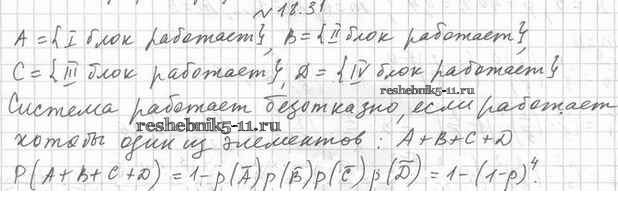 № 18.31
A = {I блок работает}, B = {II блок работает},
C = {III блок работает}, D = {IV блок работает}
Система работает безотказно, если работает
reshebnik5-11.ru
хотябы один из элементов: A+B+C+D
reshebnik5-11.ru
P(A+B+C+D) = 1-p(A̅)p(B̅)p(C̅)p(D̅) = 1-(1-p)⁴.